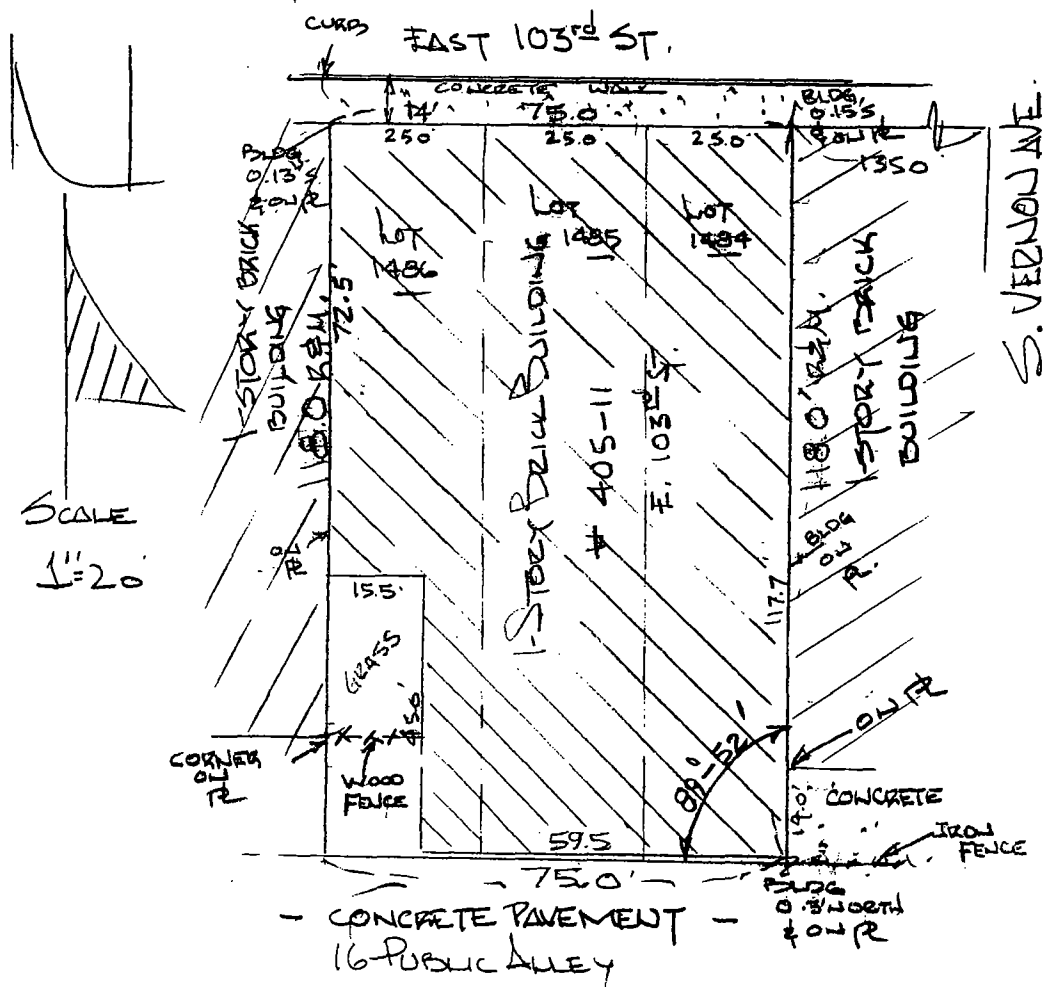 CURB
EAST 103rd ST.
CONCRETE WALK
14'
75.0'
25.0
25.0
25.0
BLDG.
0.15'S
& ON PL
135.0
S. VERNON AVE.
BLDG
0.13'S
& ON PL
LOT
1486
LOT
1485
LOT
1484
1-STORY BRICK
BUILDING
118.0 R&M.
72.5'
1-STORY BRICK BUILDING
# 405-11
E. 103rd ST
118.0' R&M.
1-STORY BRICK
BUILDING
SCALE
1"=20'
ON
PL
BLDG
ON
PL.
117.7
15.5'
GRASS
45.0'
89°-52'
ON PL
CORNER
ON
PL
WOOD
FENCE
14.0'
CONCRETE
IRON
FENCE
59.5
75.0'
BLDG
0.3' NORTH
& ON PL
- CONCRETE PAVEMENT -
16-PUBLIC ALLEY